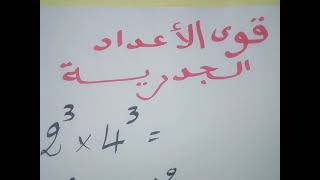 قوى الأعداد
الجدرية
2³ × 4³ =